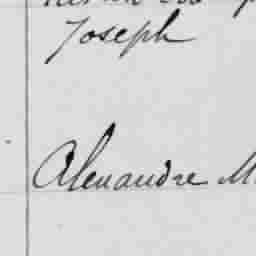 Joseph
Alexandre M